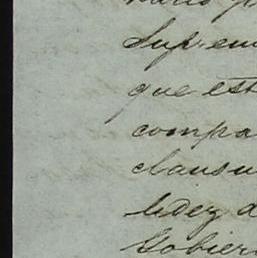 Suprem
que est
compa
clausu
lidez d
Gobier